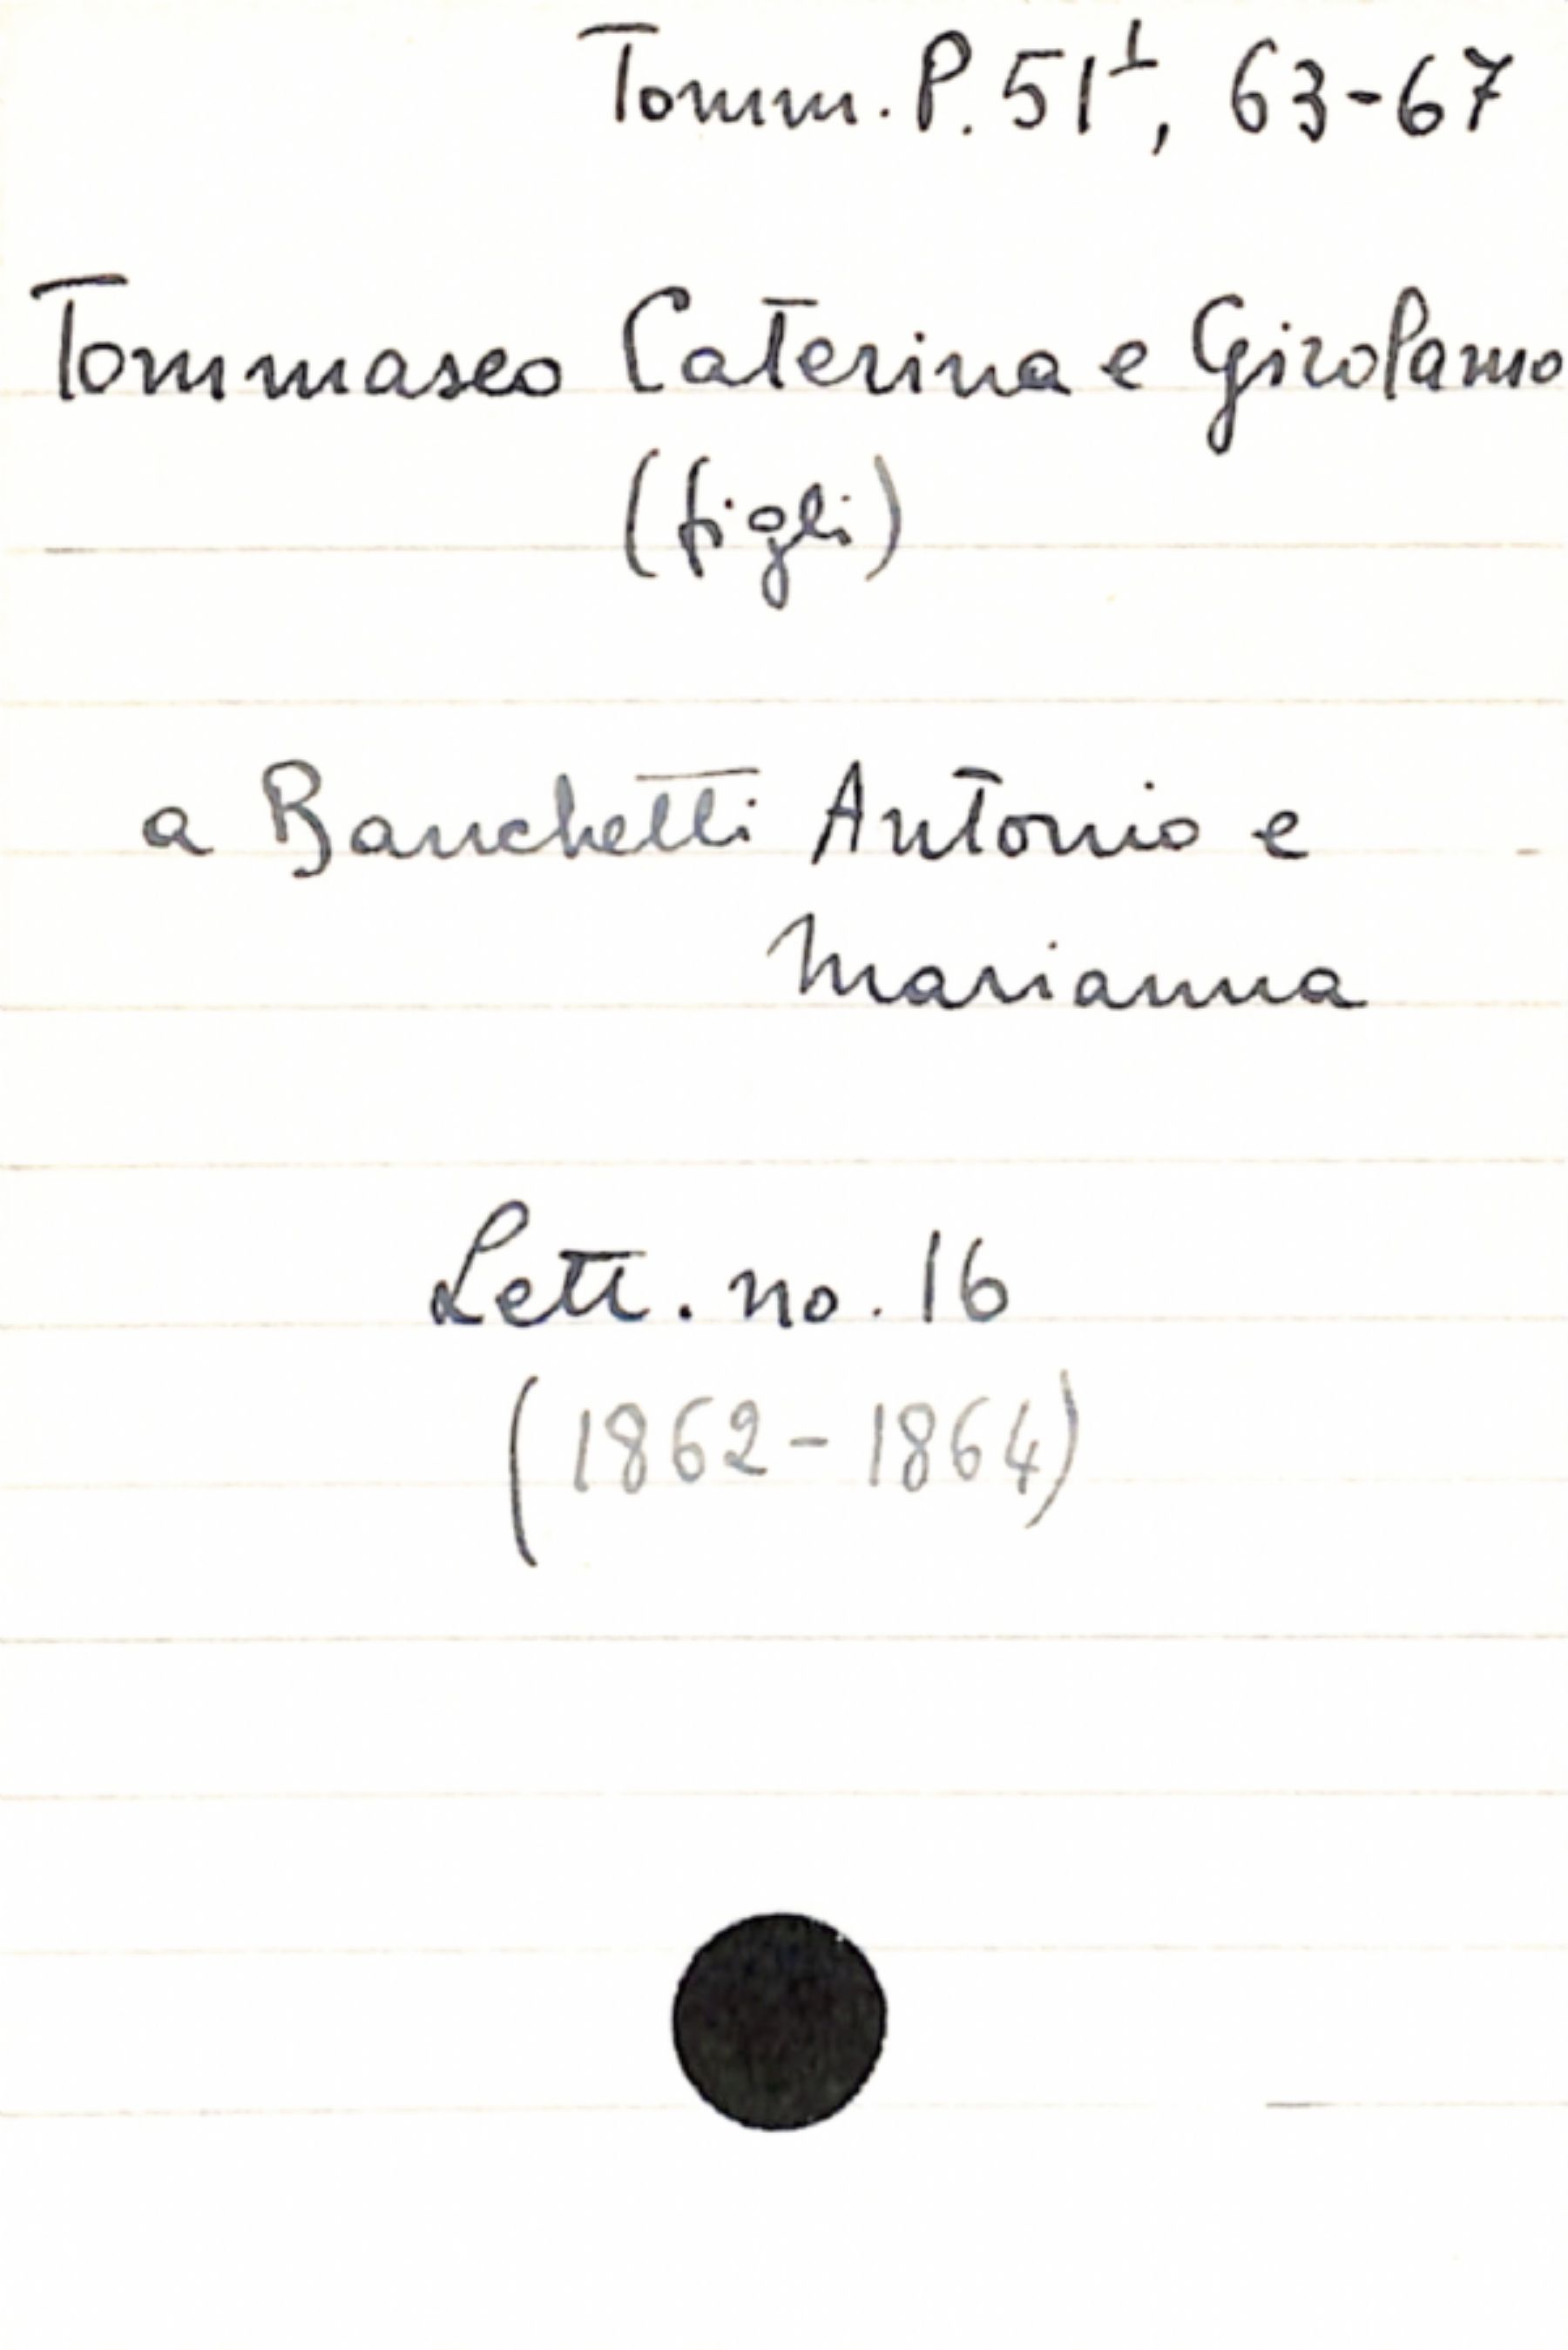 Tomm. P. 51¹, 63-67
Tommaseo Caterina e Girolamo
(figli)
a Banchetti Antonio e
Marianna
Lett. no. 16
(1862-1864)